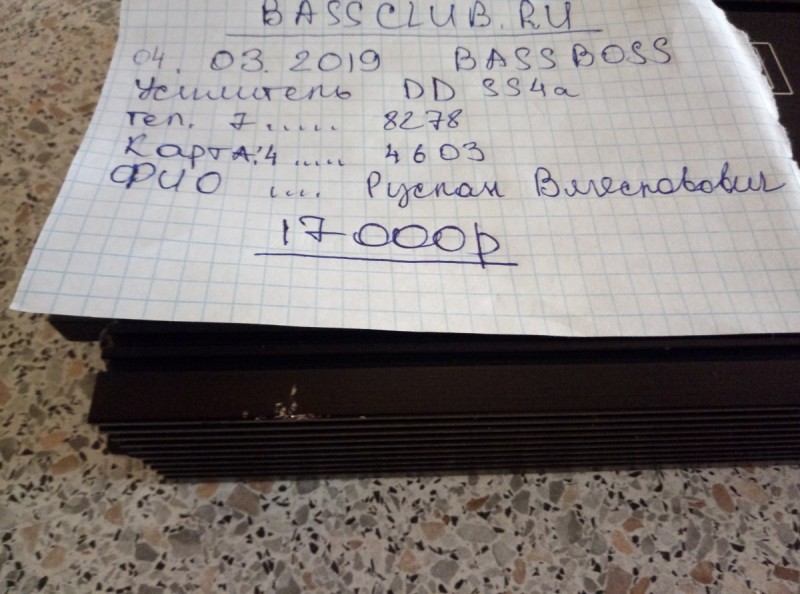 BASSCLUB.RU
04. 03. 2019 BASSBOSS
Усилитель DD SS4a
тел. 7..... 8278
Карта:4 ..... 4603
ФИО .... Руслан Вячеславович
17000р